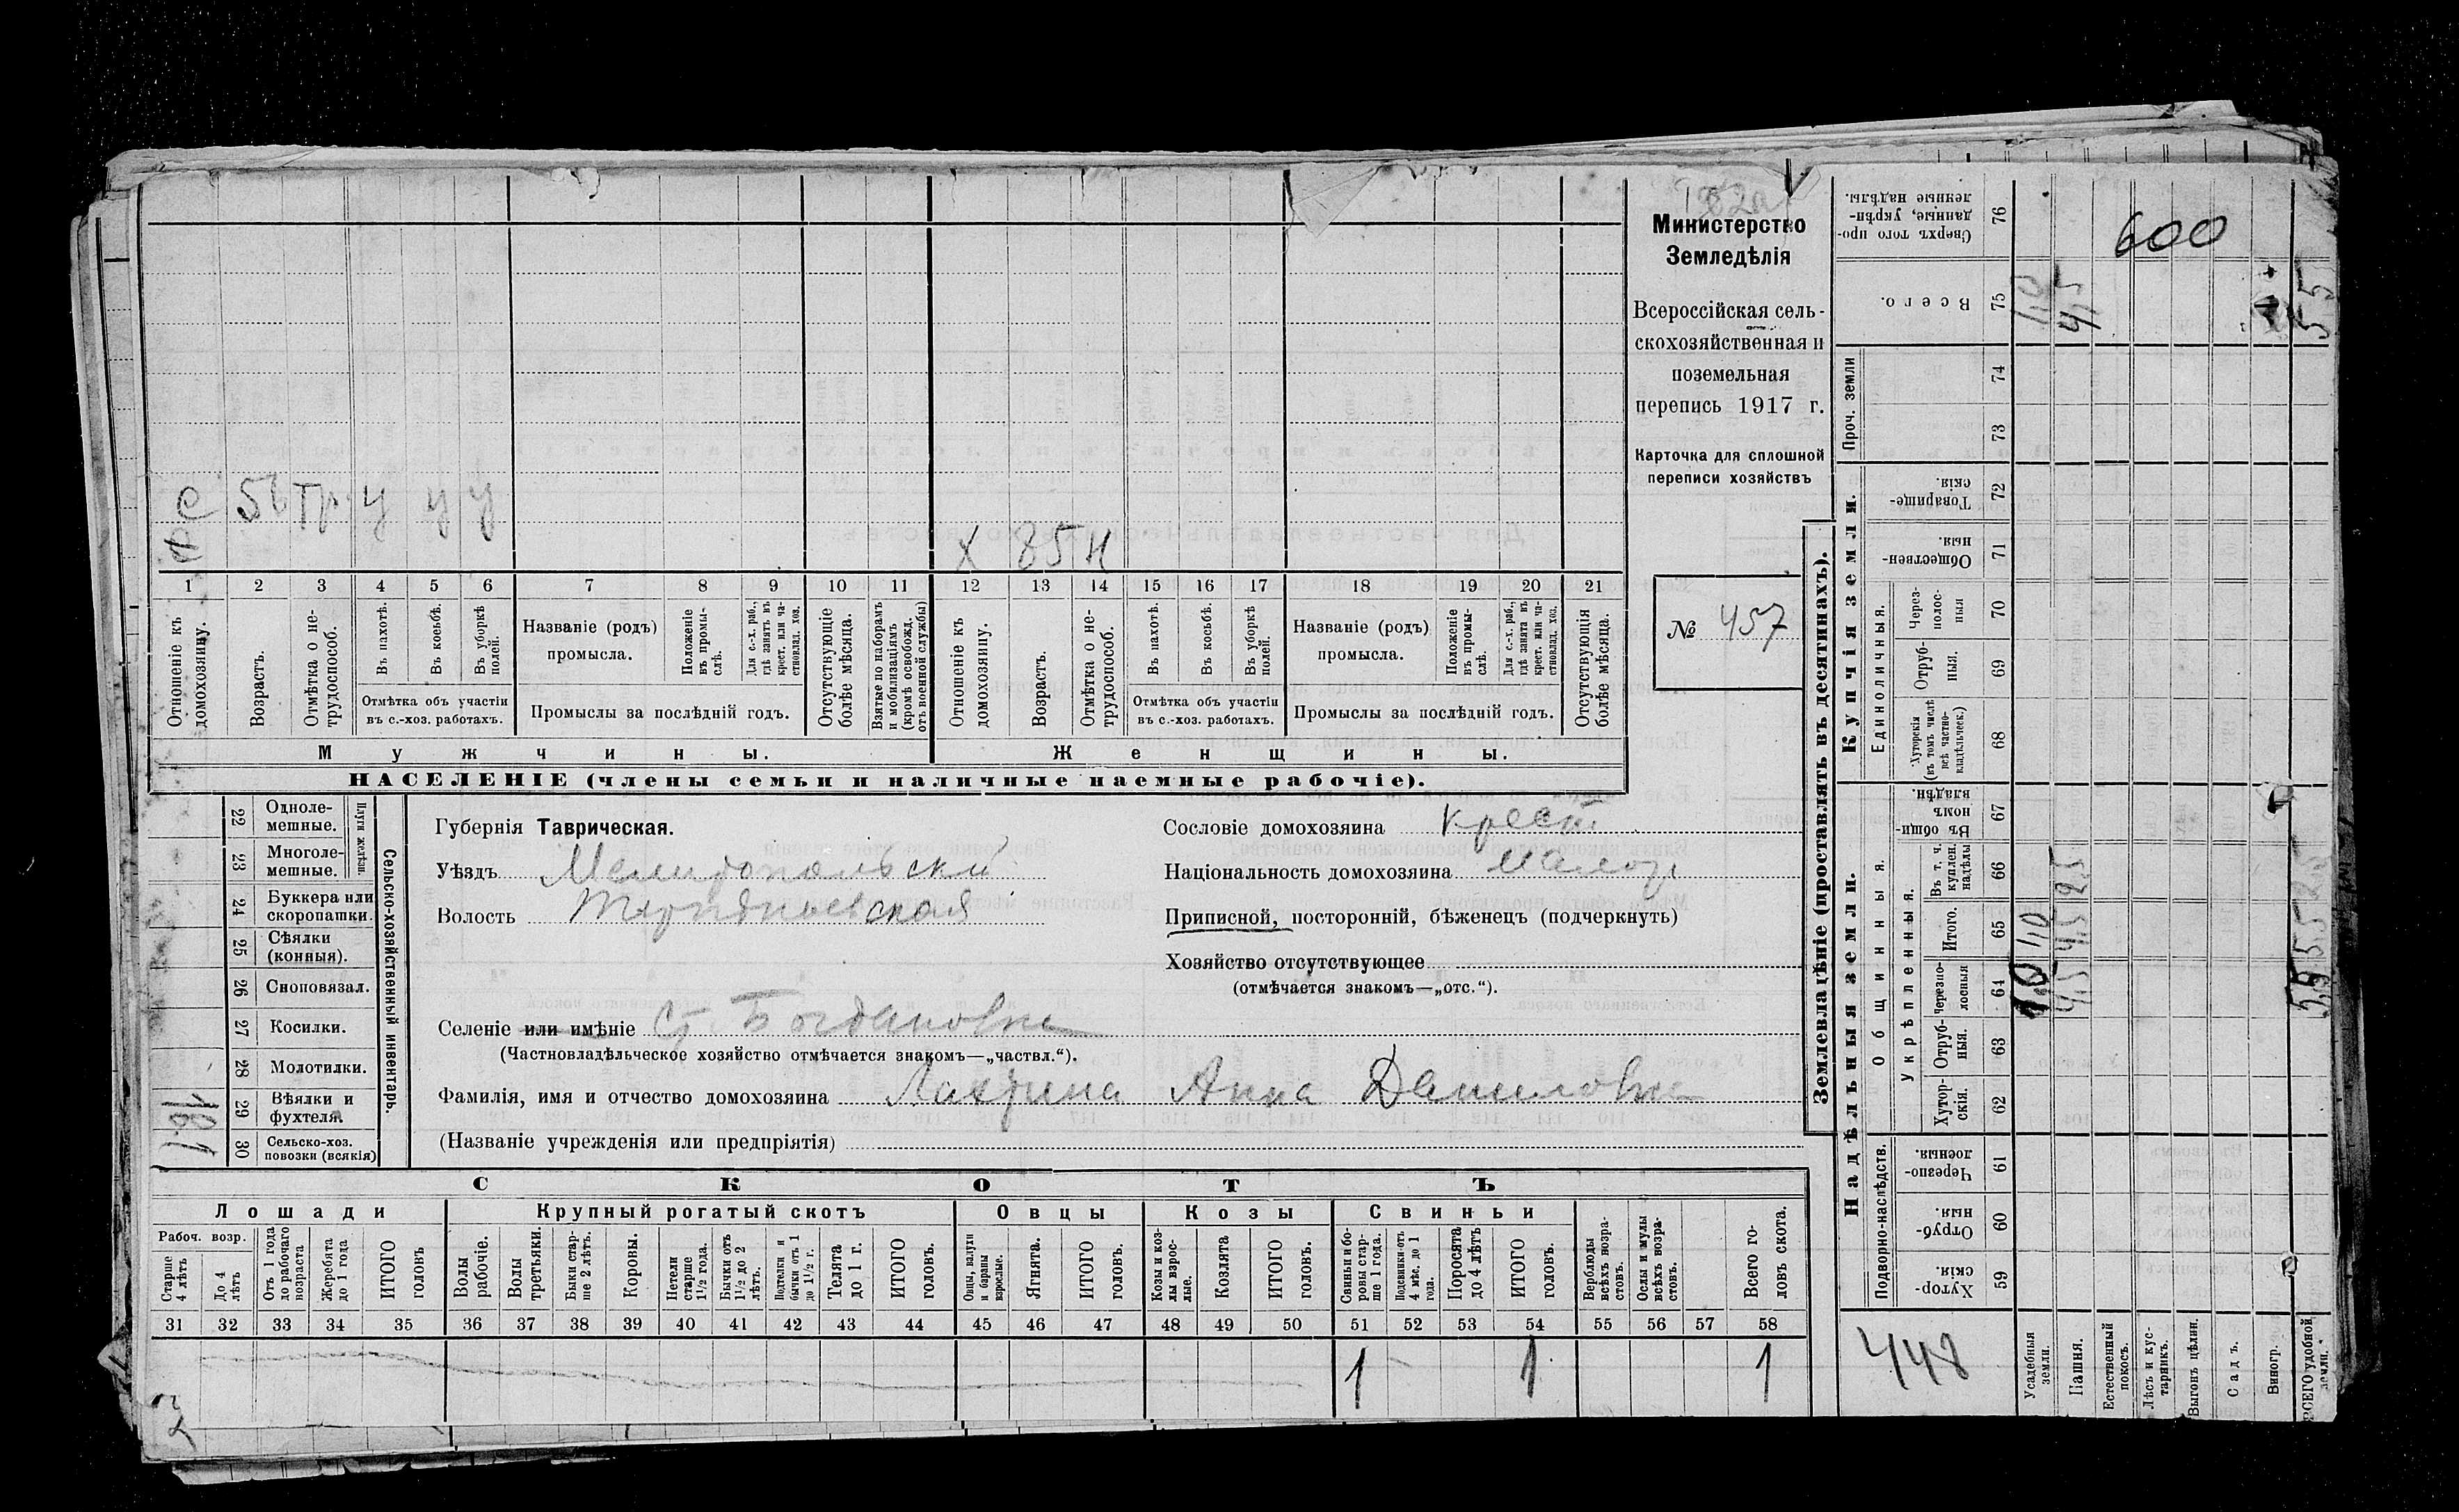 Министерство
Земледѣлія
Всероссійская сель-
скохозяйственная и
поземельная
перепись 1917 г.
Карточка для сплошной
переписи хозяйствъ
№ 457
С 56 Тр. у у у
Х 85 Н
1 2 3 4 5 6 7 8 9 10 11 12 13 14 15 16 17 18 19 20 21
Отношеніе къ домохозяину.
Возрастъ.
Отмѣтка о не-трудоспособ.
Въ пахотѣ.
Въ косьбѣ.
Въ уборкѣ полей.
Отмѣтка объ участіи
въ с.-хоз. работахъ.
Названіе (родъ)
промысла.
Положеніе въ промы-слѣ.
Для с.-х. раб., гдѣ занятъ въ крест. или ча-стновлад. хоз.
Промыслы за послѣдній годъ.
Отсутствующіе болѣе мѣсяца.
Взятые по наборамъ и мобилизаціямъ (кромѣ освобожд. отъ военной службы)
Отношеніе къ домохозяину.
Возрастъ.
Отмѣтка о не-трудоспособ.
Въ пахотѣ.
Въ косьбѣ.
Въ уборкѣ полей.
Отмѣтка объ участіи
въ с.-хоз. работахъ.
Названіе (родъ)
промысла.
Положеніе въ промы-слѣ.
Для с.-х. раб., гдѣ занята въ крест. или ча-стновлад. хоз.
Промыслы за послѣдній годъ.
Отсутствующія болѣе мѣсяца.
Мужчины.
Женщины.
НАСЕЛЕНІЕ (члены семьи и наличные наемные рабочіе).
22 Одноле-мешные.
23 Многоле-мешные.
Плуги желѣзн.
24 Буккера или скоропашки.
25 Сѣялки (конныя).
26 Сноповязал.
27 Косилки.
28 Молотилки.
29 Вѣялки и фухтеля.
30 Сельско-хоз. повозки (всякія)
Сельско-хозяйственный инвентарь.
Губернія Таврическая.
Уѣздъ Мелитопольский
Волость Терпениевская
Селеніе или имѣніе Ст. Богдановка
(Частновладѣльческое хозяйство отмѣчается знакомъ—„частвл.“).
Фамилія, имя и отчество домохозяина Лаврина Анна Даниловна
(Названіе учрежденія или предпріятія)
Сословіе домохозяина крест.
Національность домохозяина малор.
Приписной, посторонній, бѣженецъ (подчеркнуть)
Хозяйство отсутствующее
(отмѣчается знакомъ—„отс.“).
СКОТЪ
Лошади
Рабоч. возр.
Старше 4 лѣтъ
До 4 лѣтъ
Отъ 1 года до рабочаго возраста
Жеребята до 1 года
ИТОГО головъ
Крупный рогатый скотъ
Волы рабочіе.
Волы третьяки.
Быки стар-ше 2 лѣтъ.
Коровы.
Нетели старше 1½ года.
Бычки отъ 1½ до 2 лѣтъ.
Подтелки и бычки отъ 1 до 1½ г.
Телята до 1 г.
ИТОГО головъ.
Овцы
Овцы, валухи и бараны взрослые.
Ягнята.
ИТОГО головъ.
Козы
Козы и коз-лы взрос-лые.
Козлята
ИТОГО головъ.
Свиньи
Свиньи и бо-ровы стар-ше 1 года.
Подсвинки отъ 4 мѣс. до 1 года.
Поросята до 4 лѣтъ
ИТОГО головъ.
Верблюды всѣхъ возра-стовъ.
Ослы и мулы всѣхъ возра-стовъ.
Всего го-ловъ скота.
31 32 33 34 35 36 37 38 39 40 41 42 43 44 45 46 47 48 49 50 51 52 53 54 55 56 57 58
1 1 1
Землевладѣніе (проставлять въ десятинахъ).
Сверхъ того про-данные, укрѣп-ленные надѣлы. 76
Всего. 75
Проч. земли 74 73
Купчія земли.
Товарище-скія. 72
Обществен-ныя. 71
Единоличныя.
Через-полос-ныя 70
Отруб-ныя. 69
Хуторскія (въ томъ числѣ всѣ частно-владѣльческ.) 68
Надѣльныя земли.
Общинныя.
Въ общи-номъ владѣн. 67
Укрѣпленныя.
Въ т. ч. куплен. надѣлы 66
Итого. 65
Черезпо-лосныя 64
Отруб-ныя. 63
Хутор-скія. 62
Подворно-наслѣдств.
Черезпо-лосныя. 61
Отруб-ныя. 60
Хутор-скія. 59
600
448
Усадебныя земли.
Пашня.
Естественный покосъ.
Лѣсъ и кус-тарникъ.
Выгонъ цѣлин.
Садъ.
Виногр.
ВСЕГО удобной земли.